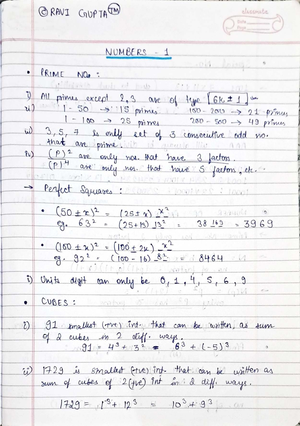 © RAVI GUPTA™
classmate
NUMBERS - 1
• PRIME NOs:
i) All primes except 2,3 are of type 6k ± 1
ii) 1 - 50 → 15 primes 100 - 200 → 21 primes
1 - 100 → 25 primes 200 - 500 → 49 primes
iii) 3, 5, 7 is only set of 3 consecutive odd no.
that are prime.
iv) (P)² are only nos. that have 3 factors.
(P)⁴ are only nos. that have 5 factors, etc.
→ Perfect Squares:
• (50 ± x)² = (25 ± x) x²
eg. 63² = (25+13) 13² = 38 169 = 3969
• (100 ± x)² = (100 ± 2x) x²
eg. 92² = (100 - 16) 8² = 8464
i) Units digit can only be 0, 1, 4, 5, 6, 9
• CUBES:
i) 91 smallest (+ve) int. that can be written, as sum
of 2 cubes in 2 diff. ways.
91 = 4³ + 3³ = 6³ + (-5)³
ii) 1729 is smallest (+ve) int. that can be written as
sum of cubes of 2 (+ve) int in 2 diff. ways.
1729 = 1³ + 12³ = 10³ + 9³